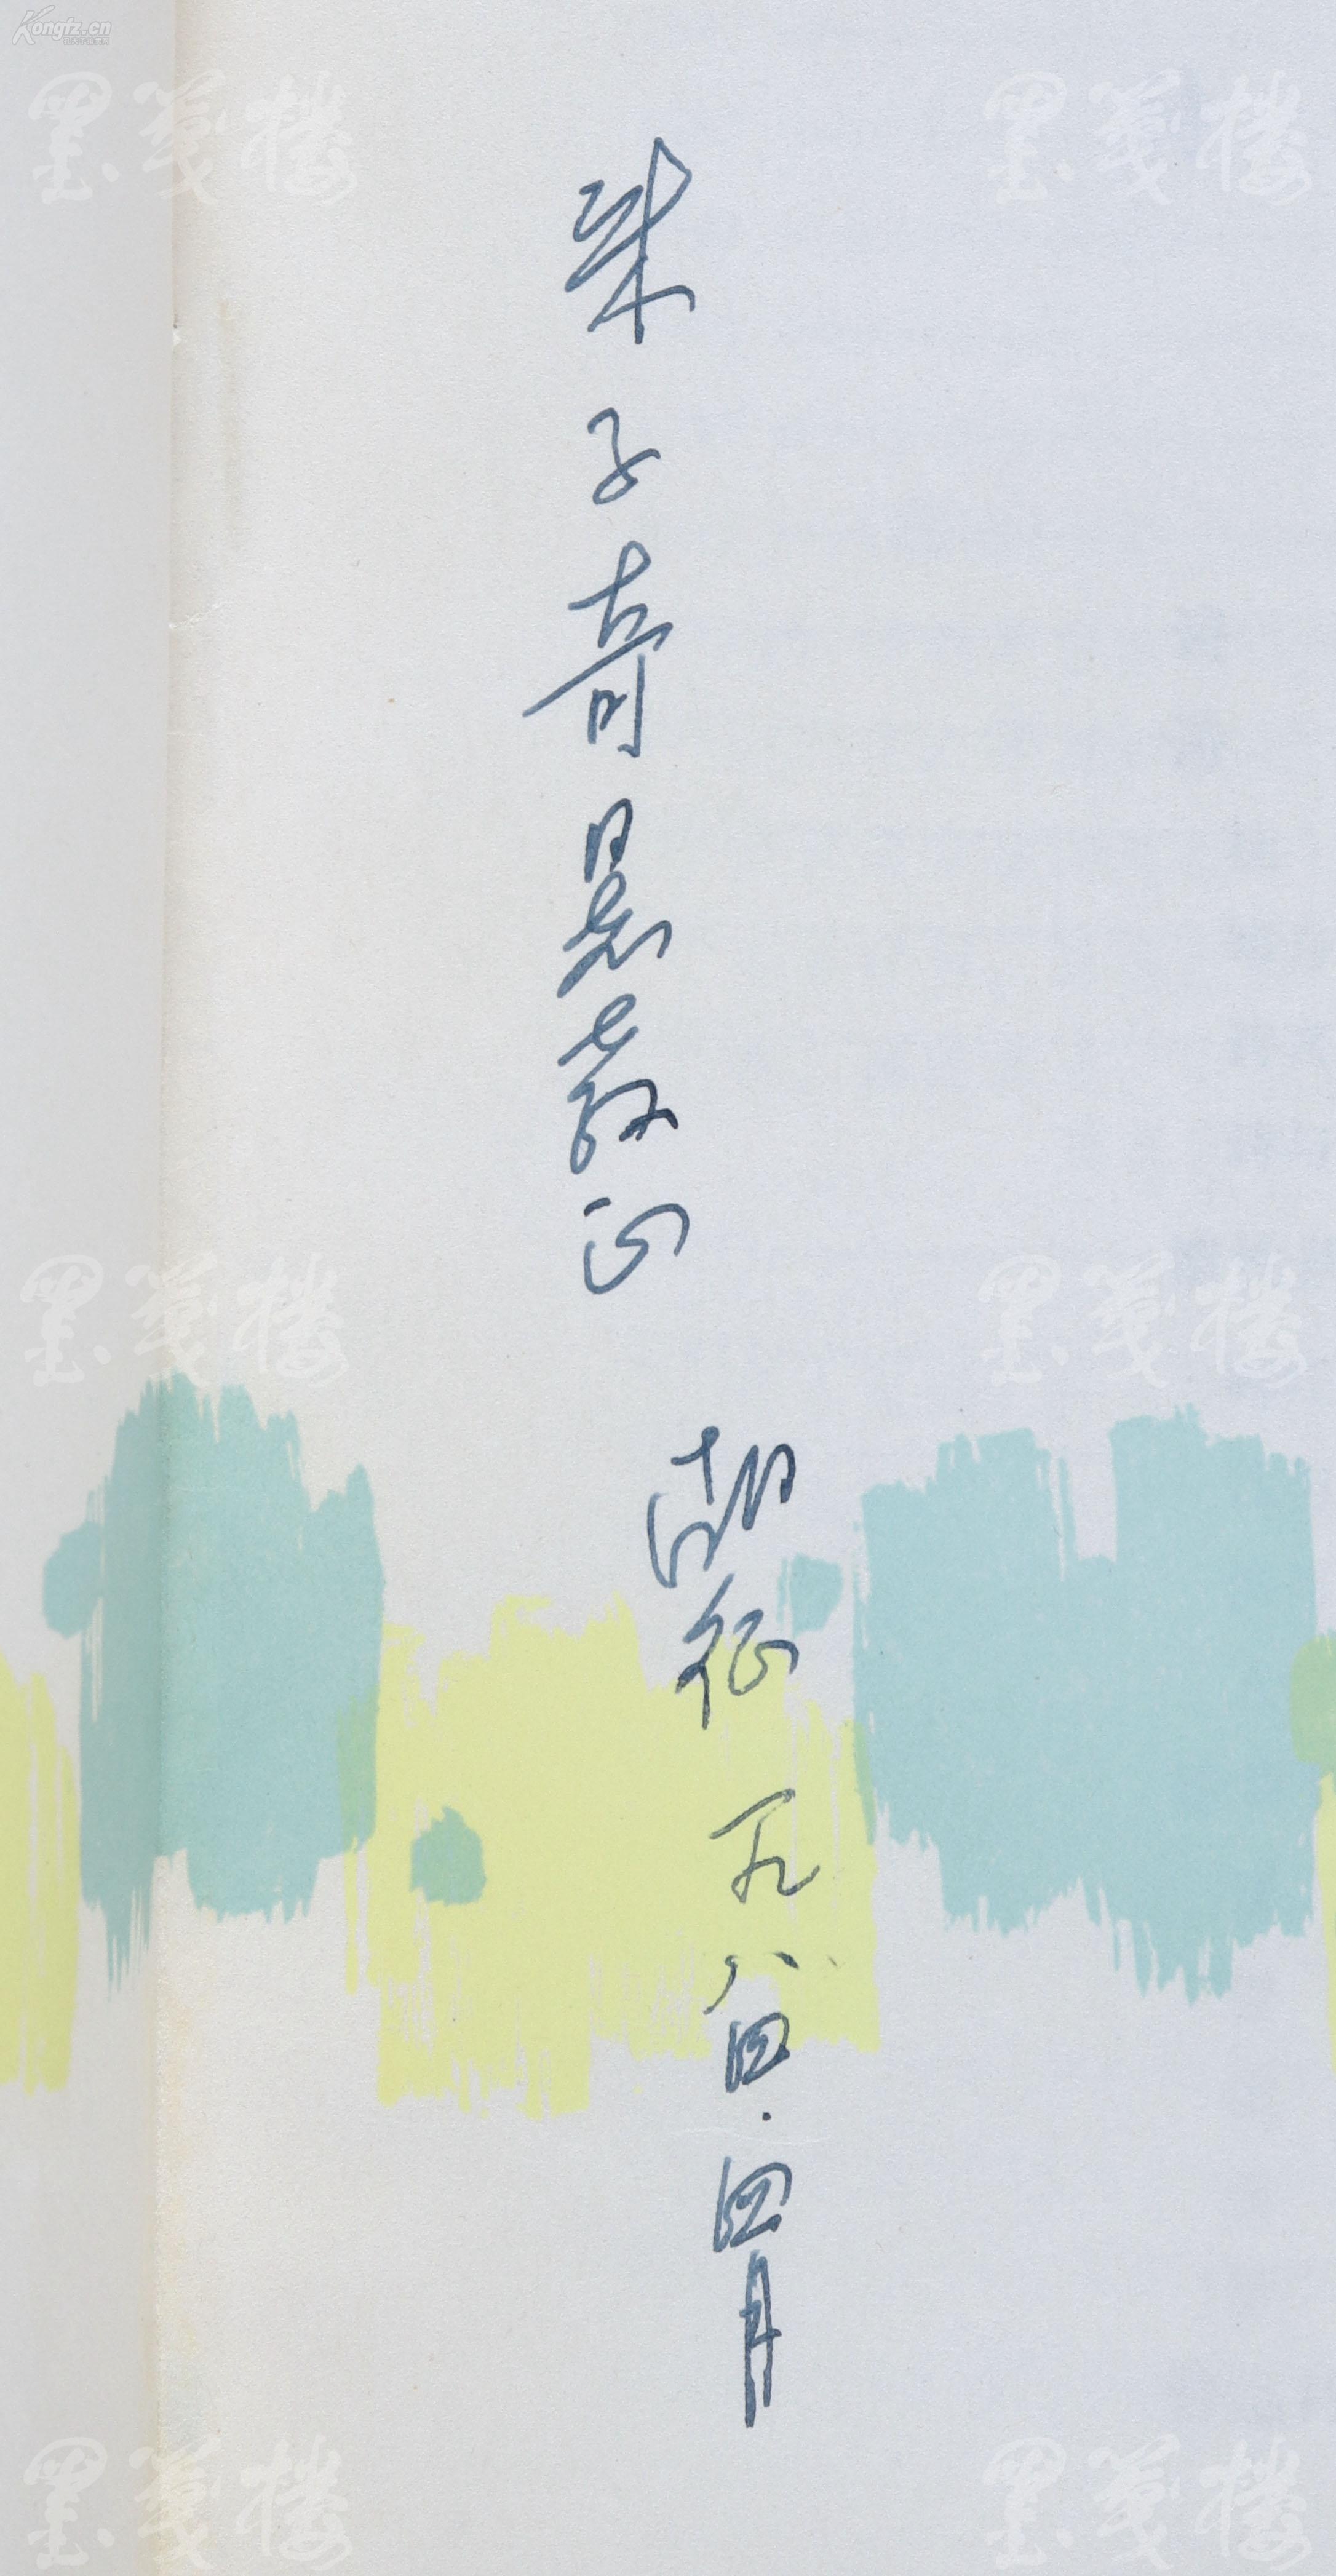 Kongfz.cn
墨笺楼 墨笺楼
朱子奇同志教正
胡征 一九八四.四月
墨笺楼 墨笺楼
墨笺楼 墨笺楼